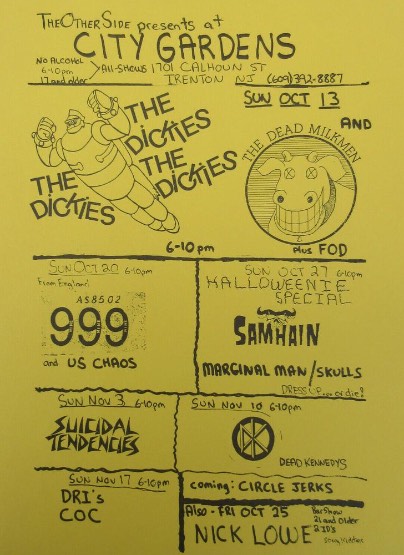 The Other Side presents at
CITY GARDENS
NO ALCOHOL
6-10pm
17 and older
All-Shows 1701 CALHOUN ST
TRENTON NJ (609) 392-8887
SUN OCT 13
THE DICKIES
THE DICKIES
THE DICKIES
AND
THE DEAD MILKMEN
6-10 pm
plus FOD
SUN Oct 20 6-10pm
From England
AS8502
999
and US CHAOS
SUN OCT 27 6-10pm
HALLOWEENIE
SPECIAL
SAMHAIN
MARGINAL MAN/SKULLS
DRESS UP... or die!
SUN Nov 3 6-10pm
SUICIDAL
TENDENCIES
SUN NOV 10 6-10pm
DEAD KENNEDYS
SUN NOV 17 6-10pm
DRI's
COC
coming: CIRCLE JERKS
Also - FRI OCT 25
NICK LOWE
Bar Show
21 and Older
2 ID's